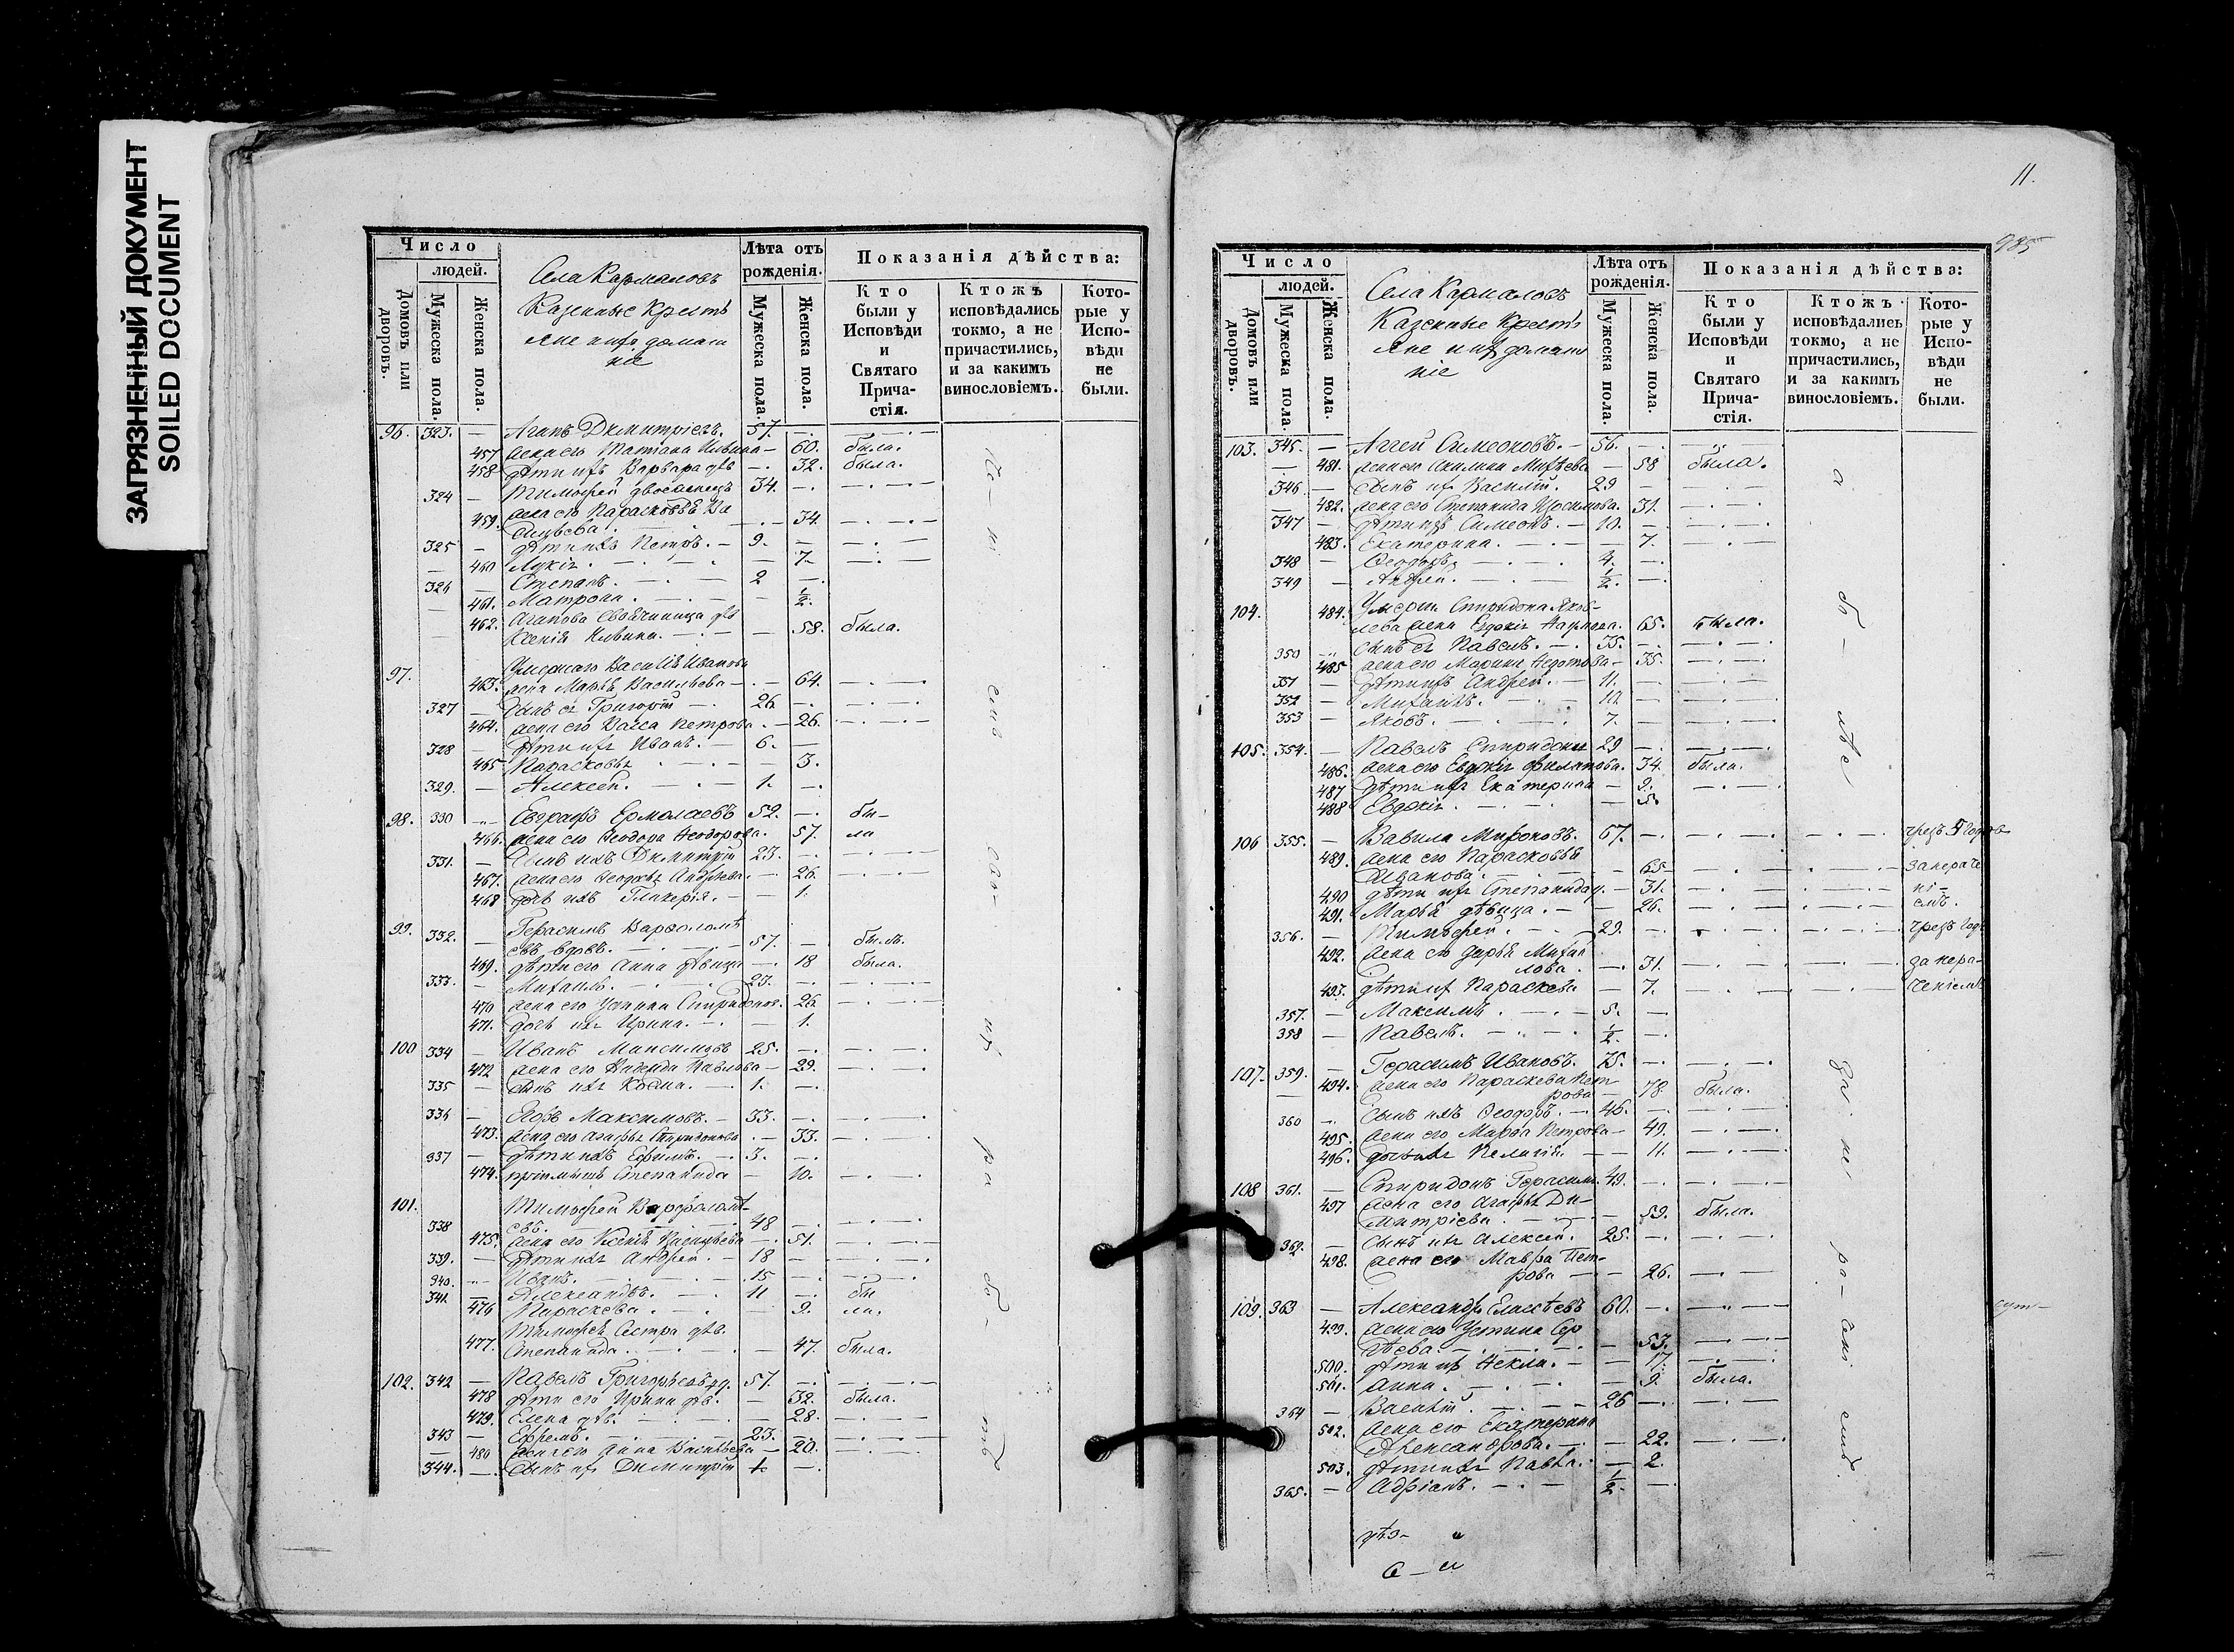 ЗАГРЯЗНЕННЫЙ ДОКУМЕНТ
SOILED DOCUMENT
Число
людей.
Домовъ или дворовъ.
Мужеска пола.
Женска пола.
Села Кармаловъ
Казенные Крестья
яне и ихъ домаш
ніе
Лѣта отъ рожденія.
Мужеска пола.
Женска пола.
Показанія дѣйства:
Кто были у Исповѣди и Святаго Причастія.
Ктожъ исповѣдались токмо, а не причастились, и за какимъ винословіемъ.
Которые у Исповѣди не были.
96. 323. — Агапъ Димитріевъ. 57. —
457 жена его Татіана — 60. была.
458 Дѣти ихъ Варвара дѣв — 32. была.
324 — Тимофей двоеженецъ 34. —
459. жена его Парасковья Ва
сильева. — 34.
325 — Дѣти ихъ Петръ. — 9. —
460 Лукія. — 7.
326 — Степанъ. — 2 —
461. Матрона. — 1/2.
462. Агапова Свояченица дѣв
Ксенія — 58. была.
97. Умершаго Василія Иванова
463. жена Марья Васильева — 64.
327 — Сынъ ея Григорій — 26 —
464. жена его Васса Петрова. — 26.
328 — Дѣти ихъ Иванъ. — 6. —
465 Парасковья — 3.
329. — Алексей. — 1. —
98. 330 — Евграфъ Ермолаевъ 52. — бы-
466. жена его Феодора Феодорова. 57. ла
331. — Сынъ ихъ Димитрій 23. —
467. жена его Андреева. — 26.
468 дочь ихъ Гликерія. — 1.
99. 332. — Герасимъ Варфоломѣ
евъ вдовъ. — 57. — былъ.
469. дѣти его Анна дѣвица — 18 была.
333. — Михаилъ. — 23. —
470 жена его Устинья Спиридонов. 26.
471. дочь ихъ Ирина. — 1.
100 334 — Иванъ Максимовъ 25. —
472 жена его Надежда Павлова — 29.
335 — сынъ ихъ Косма. — 1. —
336 — Егоръ Максимовъ. — 33. —
473. жена его Агафья Спиридонова. — 33.
337 — дѣти ихъ Ефимъ. — 3. —
474. Степанида — 10.
101. Тимофей Варфоломѣ-
338 евъ. — 48 —
475. жена его Ксенія Васильева — 51.
339. — Дѣти ихъ Андрей — 18 —
340. — Иванъ. — 15 —
341. — Александръ. — 11 — бы
476 Параскева. — 9. ла.
Тимофея Сестра дѣв.
477. Степанида. — 47. была.
102. 342 — Павелъ Григорьевъ вд. 57. —
478 дѣти его Ирина дѣв. — 32. была.
479. Елена дѣв. — 28.
343 — Ефремъ. — 23. —
480 жена его Анна Васильева — 20.
344. — Сынъ ихъ Димитрій 1. —
11.
985
Число
людей.
Домовъ или дворовъ.
Мужеска пола.
Женска пола.
Села Кармаловъ
Казенные Крестья
яне и ихъ домаш
ніе
Лѣта отъ рожденія.
Мужеска пола.
Женска пола.
Показанія дѣйства:
Кто были у Исповѣди и Святаго Причастія.
Ктожъ исповѣдались токмо, а не причастились, и за какимъ винословіемъ.
Которые у Исповѣди не были.
103. 345. — Аггей Симеоновъ. — 56. —
481. жена его Акилина Михѣева — 58 была.
346. — сынъ ихъ Василій. 29 —
482. жена его Степанида 31.
347 — Дѣти ихъ Симеонъ. — 10. —
483. Екатерина. — 7.
348 — Феодоръ. — 4. —
349 — Андрей. — 1/2. —
104. 484. Умерш. Спиридона Яков-
лева жена Евдокія Карпова. 65. была.
350 сынъ ея Павелъ. — 35. —
485 жена его Марина Федотова — 35.
351 — Дѣти ихъ Андрей. — 11. —
352 — Михаилъ. — 10. —
353 — Яковъ. — 7. —
105. 354. — Павелъ Спиридоны 29 —
486. жена его Евдокія Филипова. 34. была.
487 дѣти ихъ Екатерина — 9.
488 Евдокія. — 5.
106 355. — Вавила Мироновъ. 67. — чрезъ 5 годовъ
489. жена его Парасковья
Иванова. — 65 за нераче
490 дѣти ихъ Степанида д. — 31. ні-
491. Марья дѣвица. — 26. емъ.
356. — Тимофей. — 29. — чрезъ годъ
492. жена его Дарья Михай
лова. — 31. за нера-
493. дѣти их Параскева — 7. ченіемъ
357. — Максимъ. — 5. —
358 — Павелъ. — 1/2. —
107. 359. — Герасимъ Ивановъ. 75. —
494. жена его Параскева Пет
рова — 78 была.
360 — Сынъ ихъ Феодоръ. — 46. —
495. жена его Марфа Петрова — 49.
496. дочь ихъ Пелагія. — 11.
108 361. — Спиридонъ Герасим. 49. —
497 жена его Агафья Ди-
митріева. — 59. была.
362. — Сынъ ихъ Алексей. 25. —
498. жена его Мавра Пет-
рова — 26.
109. 363 — Александръ Елисѣевъ 60. —
499. жена его Устина Сер
гѣева. — 53.
500. дѣти ихъ Фекла. — 17.
501. Анна. — 9. была.
364 — Василій. — 26 —
502. жена его Екатерина
Александрова. — 22.
503. Дѣти ихъ Павла. — 2.
365. — Адріанъ. — 1/2. —